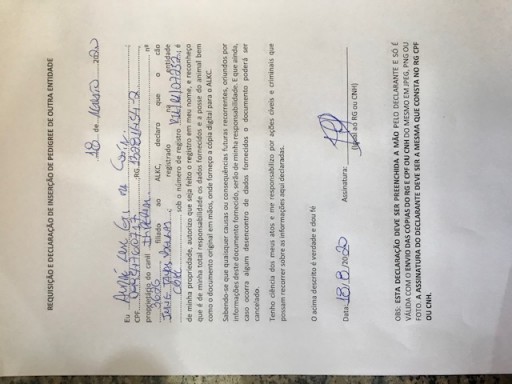 REQUISIÇÃO E DECLARAÇÃO DE INSERÇÃO DE PEDIGREE DE OUTRA ENTIDADE
18 de 2020
Eu
CPF RG
proprietário do canil nº
filiado ao ALKC, declaro que o cão
registrado na entidade
sob o número de registro é
de minha propriedade, autorizo que seja feito o registro em meu nome, e reconheço
que é de minha total responsabilidade os dados fornecidos e a posse do animal bem
como o documento original em mãos, onde forneço a cópia digital para o ALKC.
Sabendo-se que quaisquer causas ou consequências futuras recorrentes, oriundos por
informações deste documento fornecido, serão de minha responsabilidade. E que ainda,
caso ocorra algum desencontro de dados fornecidos o documento poderá ser
cancelado.
Tenho ciência dos meus atos e me responsabilizo por ações cíveis e criminais que
possam recorrer sobre as informações aqui declaradas.
O acima descrito é verdade e dou fé
Data: 18/8/2020 Assinatura:
(igual ao RG ou CNH)
OBS: ESTA DECLARAÇÃO DEVE SER PREENCHIDA A MÃO PELO DECLARANTE E SÓ É
VÁLIDA COM O ENVIO DAS COPIAS DO RGE CPF OU CNH DO MESMO EM JPEG, PNG OU
FOTO. A ASSINATURA DO DECLARANTE DEVE SER A MESMA QUE CONSTA NO RG CPF
OU CNH.